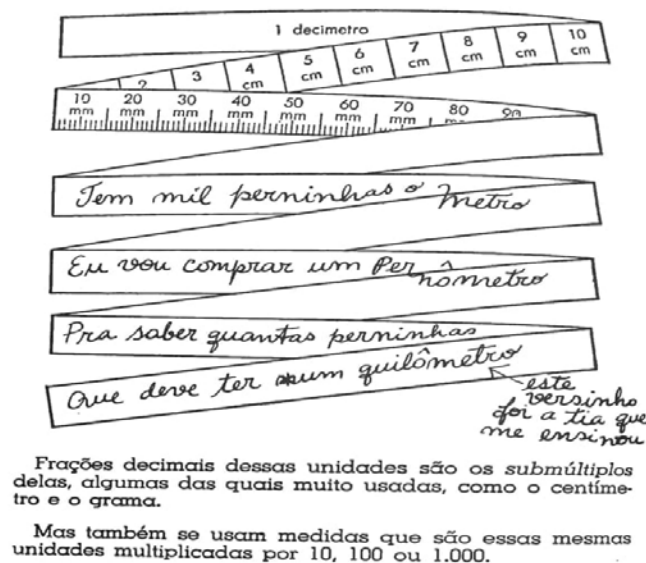 1 decimetro
2 3 4 cm 5 cm 6 cm 7 cm 8 cm 9 cm 10 cm
10 mm 20 mm 30 mm 40 mm 50 mm 60 mm 70 mm 80 mm 90
Tem mil perninhas o metro
Eu vou comprar um Per nômetro
Pra saber quantas perninhas
Que deve ter num quilômetro
este
versinho
foi a tia que
me ensinou
Frações decimais dessas unidades são os submúltiplos
delas, algumas das quais muito usadas, como o centíme-
tro e o grama.
Mas também se usam medidas que são essas mesmas
unidades multiplicadas por 10, 100 ou 1.000.